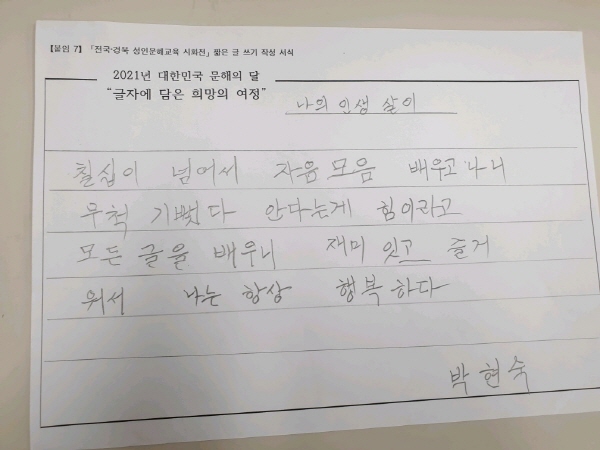 【붙임 7】 「전국·경북 성인문해교육 시화전」 짧은 글 쓰기 작성 서식
2021년 대한민국 문해의 달
“글자에 담은 희망의 여정”
나의 인생 살이
칠십이 넘어서 자음 모음 배우고 나니
무척 기뻤다 안다는게 힘이라고
모든 글을 배우니 재미 잇고 즐거
워서 나는 항상 행복하다
박현숙